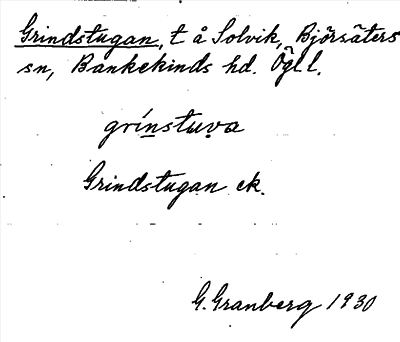 Grindstugan, t å Solvik, Björsäters
sn, Bankekinds hd. Ögl.l.
grínstuva
Grindstugan ek.
G. Granberg 1930